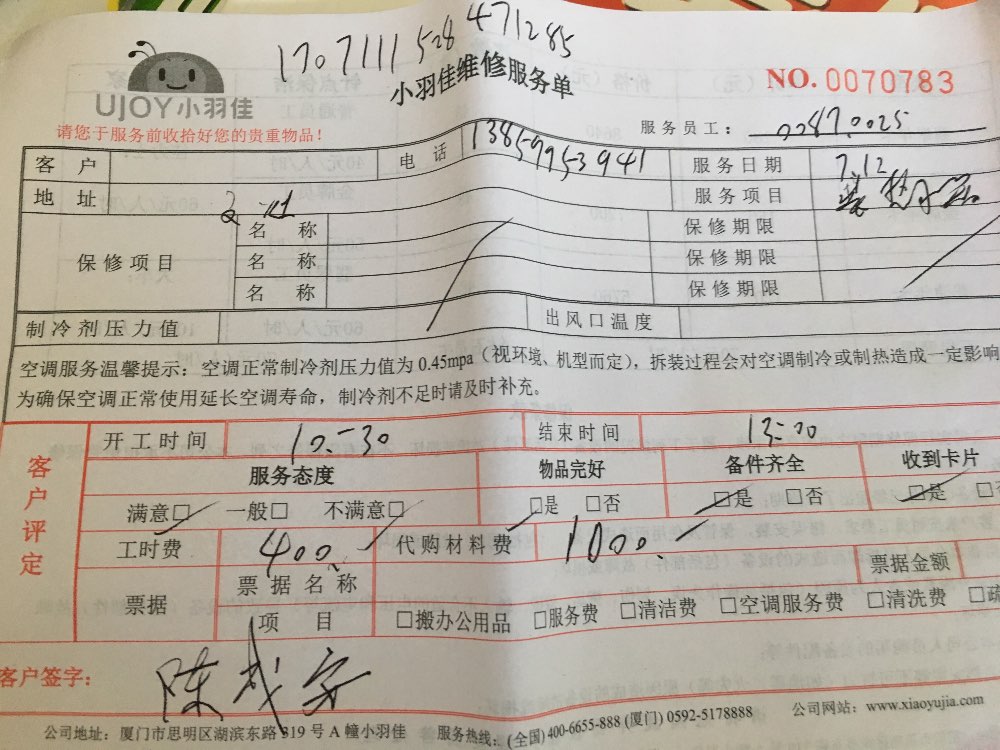 1707111528471285
UJOY小羽佳
小羽佳维修服务单
NO. 0070783
请您于服务前收拾好您的贵重物品！
服务员工：
客户 电话 13859953941 服务日期 7.12
地址 服务项目 装
保修项目 名称 保修期限
名称 保修期限
名称 保修期限
制冷剂压力值 出风口温度
空调服务温馨提示：空调正常制冷剂压力值为 0.45mpa（视环境、机型而定），拆装过程会对空调制冷或制热造成一定影响
为确保空调正常使用延长空调寿命，制冷剂不足时请及时补充。
客户评定
开工时间 10:30 结束时间 13:00
服务态度 物品完好 备件齐全 收到卡片
满意□ 一般□ 不满意□ □是 □否 □是 □否 □是 □否
工时费 400. 代购材料费 1000.
票据 票据名称 票据金额
项目 □搬办公用品 □服务费 □清洁费 □空调服务费 □清洗费 □疏
客户签字：
陈
公司地址：厦门市思明区湖滨东路 319 号 A 幢小羽佳 服务热线：(全国)400-6655-888 (厦门) 0592-5178888 公司网站：www.xiaoyujia.com